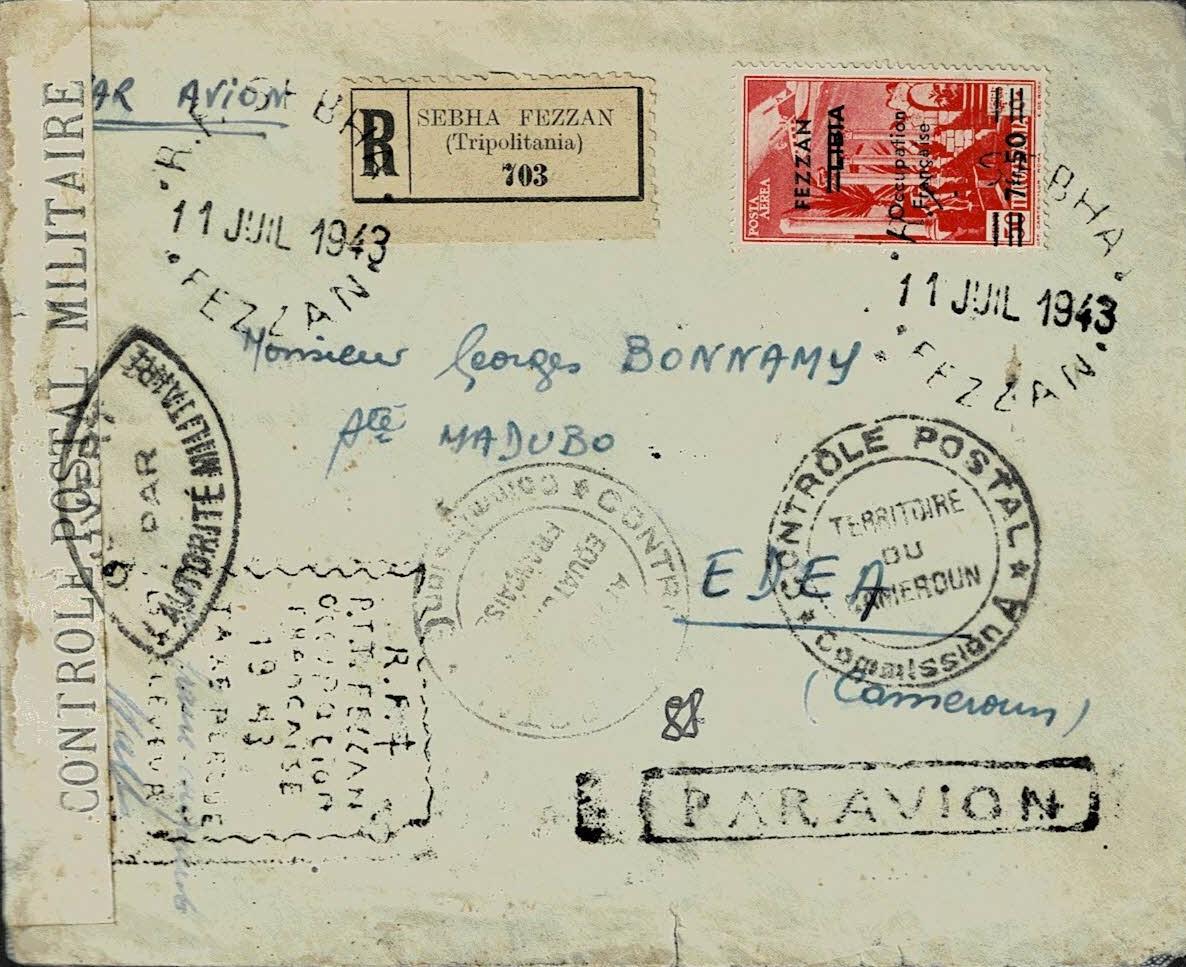 PAR AVION
R
SEBHA FEZZAN
(Tripolitania)
703
POSTA
AEREA
FEZZAN
LIBIA
Occupation
Française
7.50
SEBHA
11 JUIL 1943
FEZZAN
SEBHA
11 JUIL 1943
FEZZAN
CONTROLE POSTAL MILITAIRE
Monsieur Georges BONNAMY
Sté MADUBO
EDEA
(Cameroun)
PAR
AUTORITÉ MILITAIRE
CONTRÔLE POSTAL
TERRITOIRE
DU
CAMEROUN
Commission A
Commission
FRANÇAISE
R.F.‡
P.T.T. FEZZAN
OCCUPATION
FRANCAISE
1943
TAXE PERCUE
PAR AVION